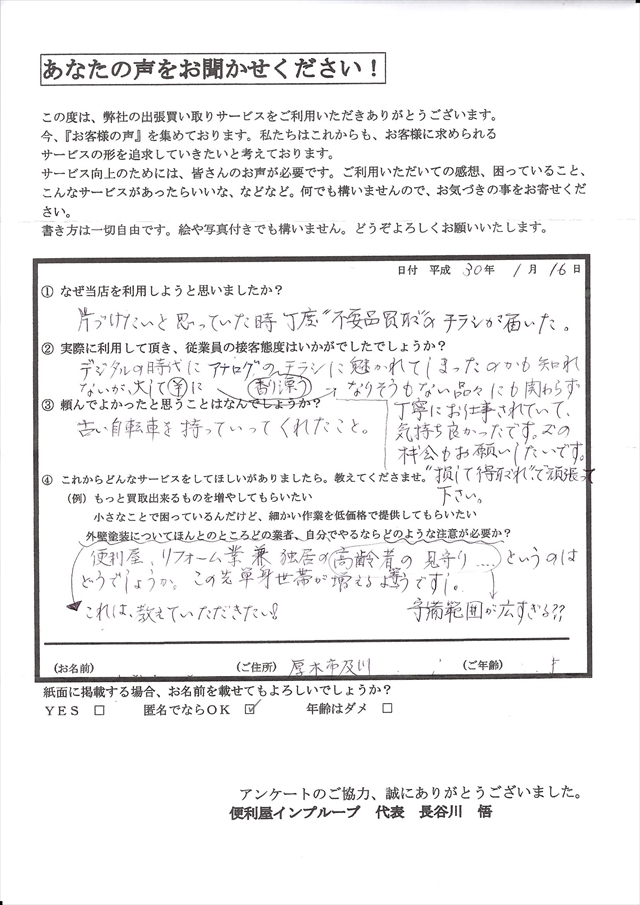 あなたの声をお聞かせください！
この度は、弊社の出張買い取りサービスをご利用いただきありがとうございます。
今、『お客様の声』を集めております。私たちはこれからも、お客様に求められる
サービスの形を追求していきたいと考えております。
サービス向上のためには、皆さんのお声が必要です。ご利用いただいての感想、困っていること、
こんなサービスがあったらいいな、などなど。何でも構いませんので、お気づきの事をお寄せくだ
さい。
書き方は一切自由です。絵や写真付きでも構いません。どうぞよろしくお願いいたします。
日付 平成 30年 1月 16日
① なぜ当店を利用しようと思いましたか？
片づけたいと思っていた時丁度"不要品買取"のチラシが届いた。
② 実際に利用して頂き、従業員の接客態度はいかがでしたでしょうか？
デジタルの時代にアナログのチラシに魅かれてしまったのかも知れ
ないが、大して㊥に 香り漂う なりそうもない品々にも関わらず
丁寧にお仕事されていて、
気持ち良かったです。次の
機会もお願いしたいです。
"損して得取れ"で頑張って
下さい。
③ 頼んでよかったと思うことはなんでしょうか？
古い自転車を持っていってくれたこと。
④ これからどんなサービスをしてほしいがありましたら、教えてくださませ。
（例）もっと買取出来るものを増やしてもらいたい
小さなことで困っているんだけど、細かい作業を低価格で提供してもらいたい
外壁塗装についてほんとのところどの業者、自分でやるならどのような注意が必要か？
便利屋、リフォーム業兼独居の高齢者の見守り….というのは
どうでしょうか。この先単身世帯が増えるようですし。
これは、教えていただきたい！ 守備範囲が広すぎる??
（お名前） （ご住所） 厚木市及川 （ご年齢）
紙面に掲載する場合、お名前を載せてもよろしいでしょうか？
ＹＥＳ □ 匿名でならＯＫ ☑ 年齢はダメ □
アンケートのご協力、誠にありがとうございました。
便利屋インプループ 代表 長谷川 悟